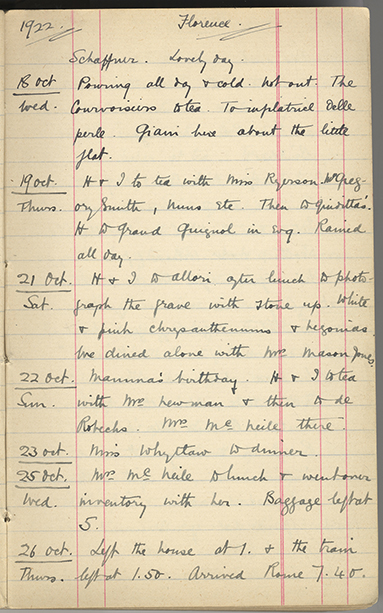 1922. Florence.
Schaffner. Lovely day.
18 Oct Pouring all day & cold. Not out. The
Wed. Courvoisiers to tea. To Delle
perle. Giani here about the little
flat.
19 Oct. H & I to tea with Miss Ryerson. McGreg-
Thurs. ory Smith, Nuns etc. Then to Giuditta's.
H to Grand Guignol in Evg. Rained
all day.
21 Oct. H & I to Allori after lunch to photo-
Sat. graph the grave with stone up. White
& pink chrysanthemums & begonias.
We dined alone with Mrs Mason Jones.
22 Oct. Mamma's birthday. H & I to tea
Sun. with Mrs Newman & then to de
Robecks. Mrs McNeile there.
23 Oct. Miss Whyttaw to dinner.
25 Oct. Mrs McNeile to lunch & went over
Wed. inventory with her. Baggage left at
5.
26 Oct. Left the house at 1. & the train
Thurs. left at 1.50. Arrived Rome 7.40.